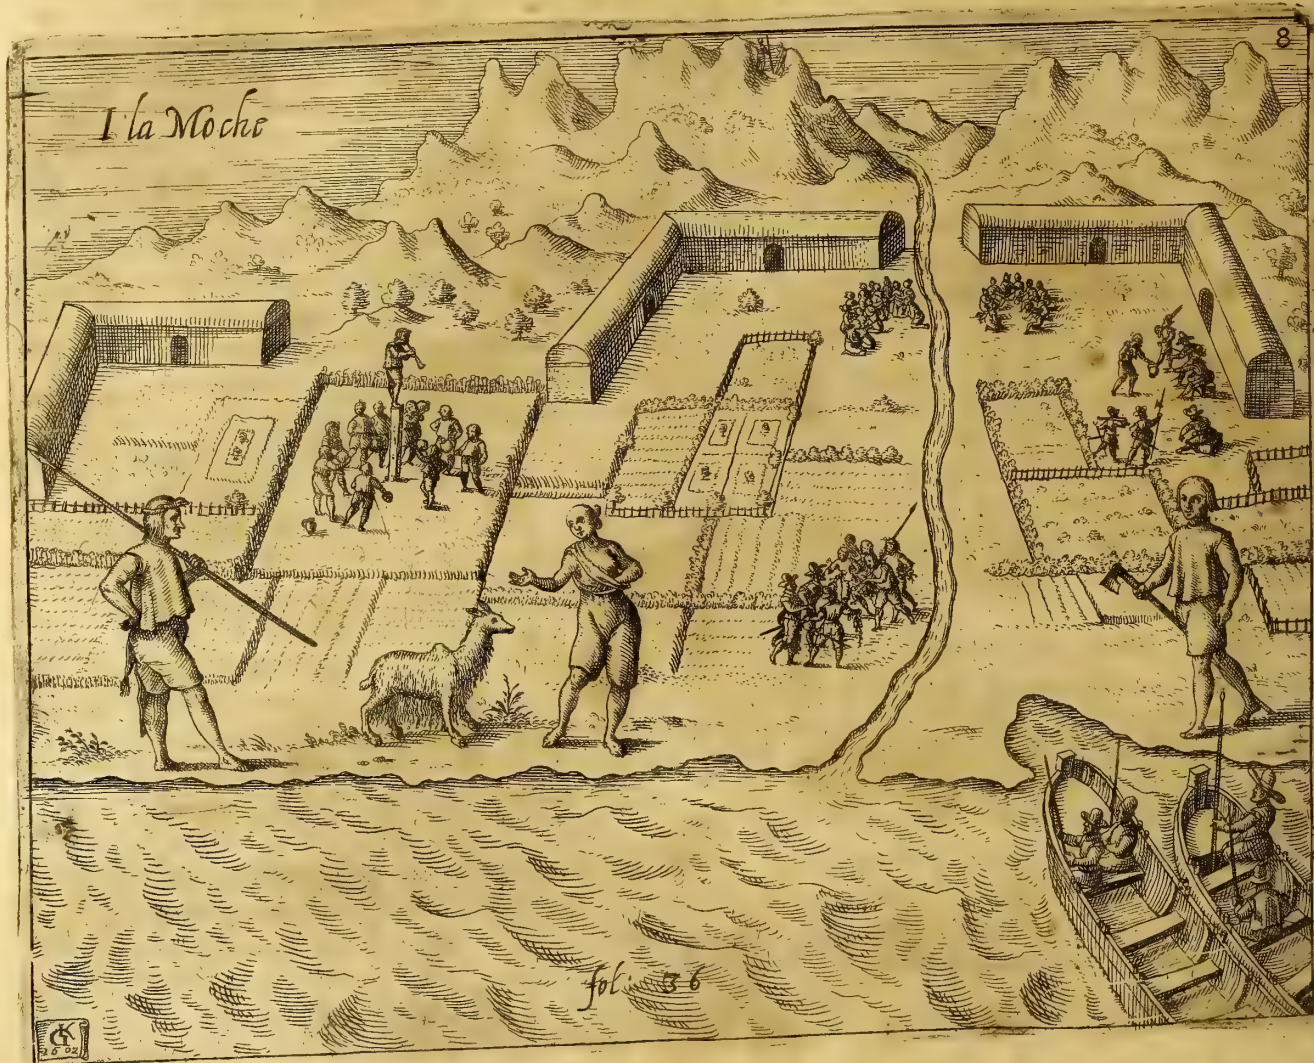 8
I la Moche
fol: 36
GK
1602